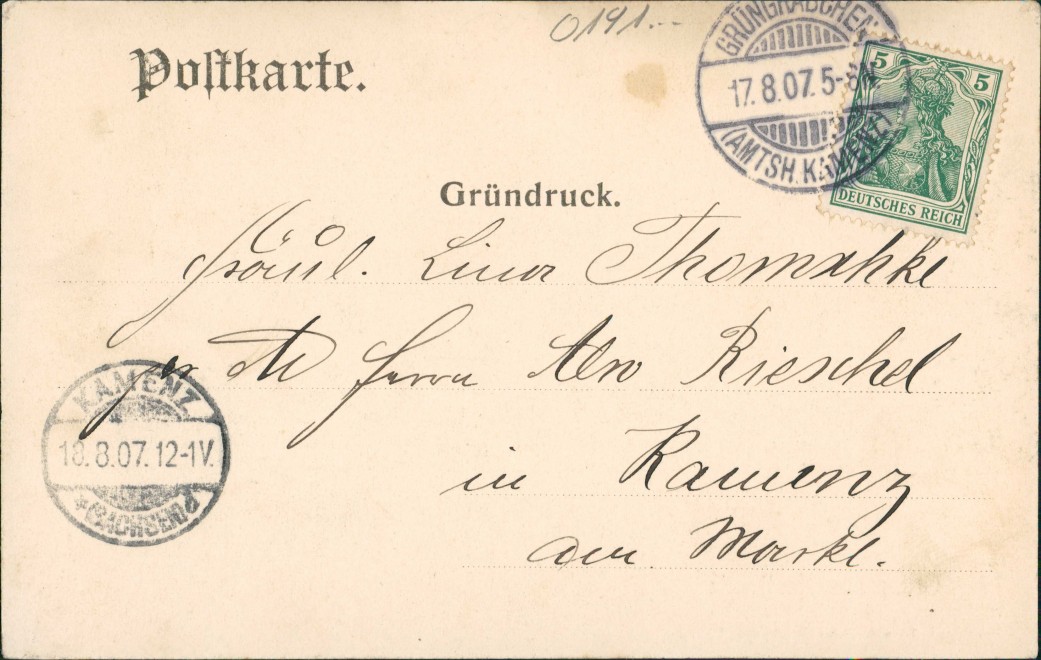 0191...
Postkarte.
GRÜNGRÄBCHEN
17.8.07.5-6N.
(AMTSH. KAMENZ)
5 5
DEUTSCHES REICH
Gründruck.
Fräul. Lina Thomschke
Herrn Rieschel
in Kamenz
am Markt.
KAMENZ
18.8.07.12-1V.
(SACHSEN)